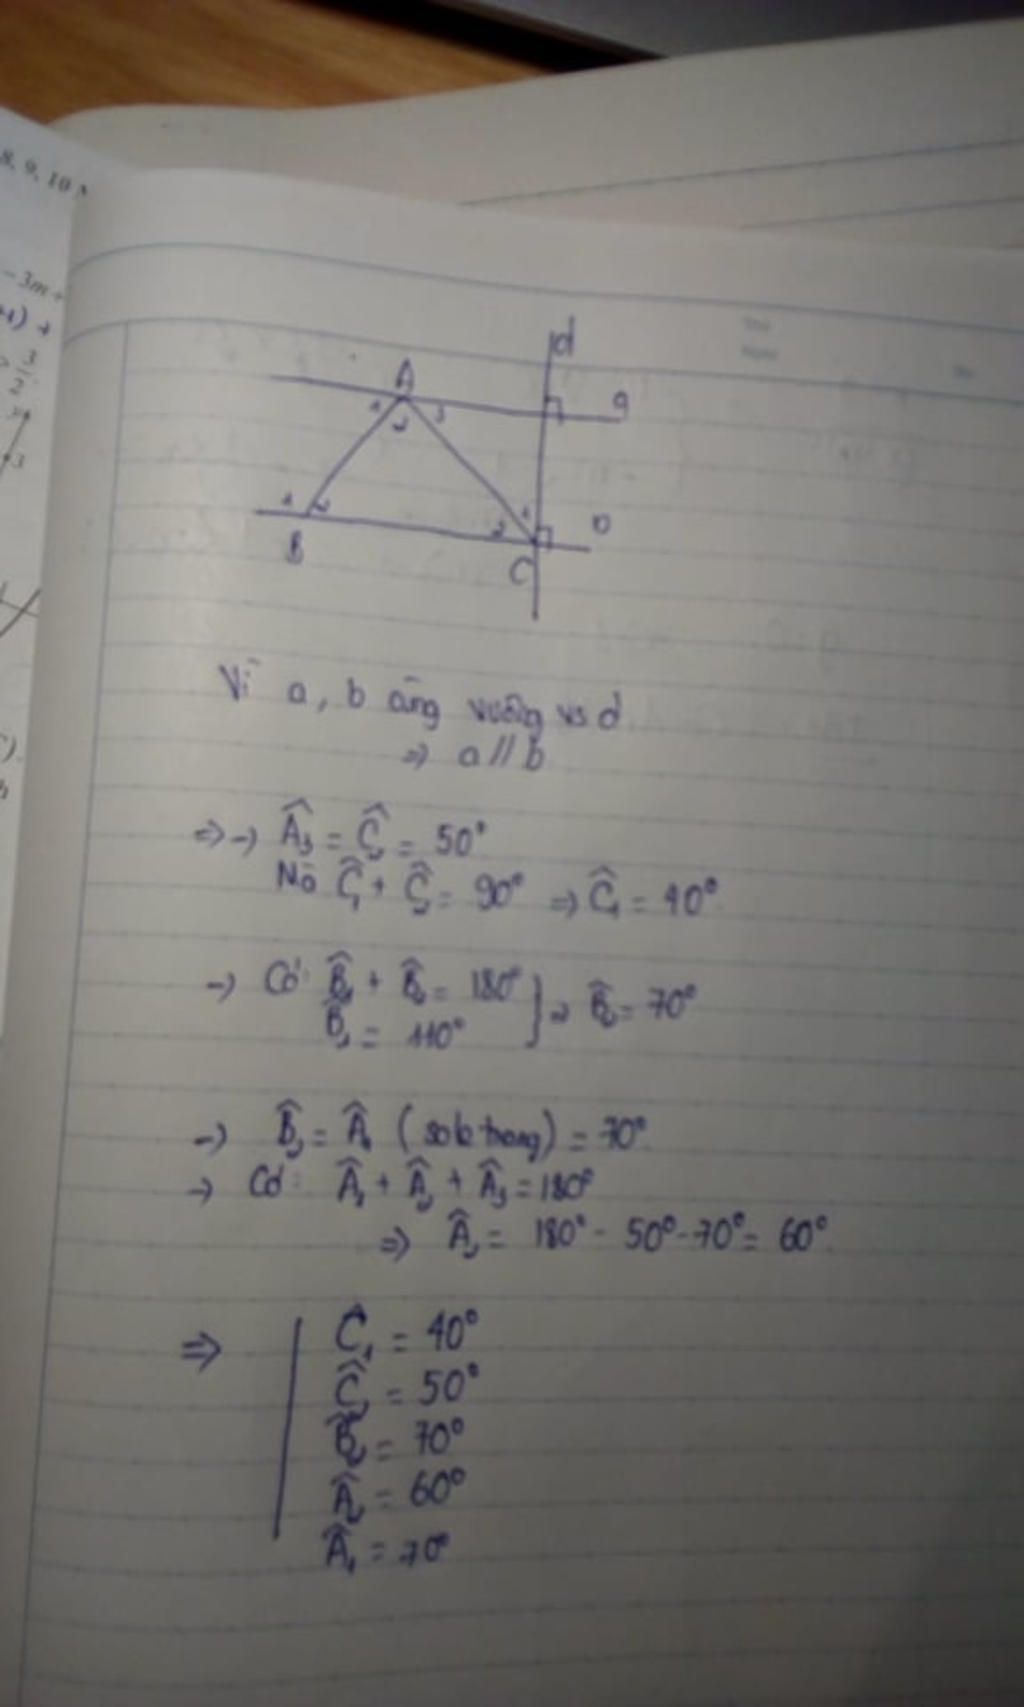 8, 9, 10
- 3m +
+1) +
> 3/2
3
d
A
1 2 3
a
1 2
2 1
b
B
C
Vì a, b cùng vuông vs d
=> a // b
=> -> Â₃ = Ĉ₂ = 50°
Mà Ĉ₁ + Ĉ₂ = 90° => Ĉ₁ = 40°
-> Có: B̂₁ + B̂₂ = 180° } => B̂₂ = 70°
B̂₁ = 110°
-> B̂₂ = Â₁ (so le trong) = 70°
-> Có: Â₁ + Â₂ + Â₃ = 180°
=> Â₂ = 180° - 50° - 70° = 60°
=> Ĉ₁ = 40°
Ĉ₂ = 50°
B̂₂ = 70°
Â₂ = 60°
Â₁ = 70°